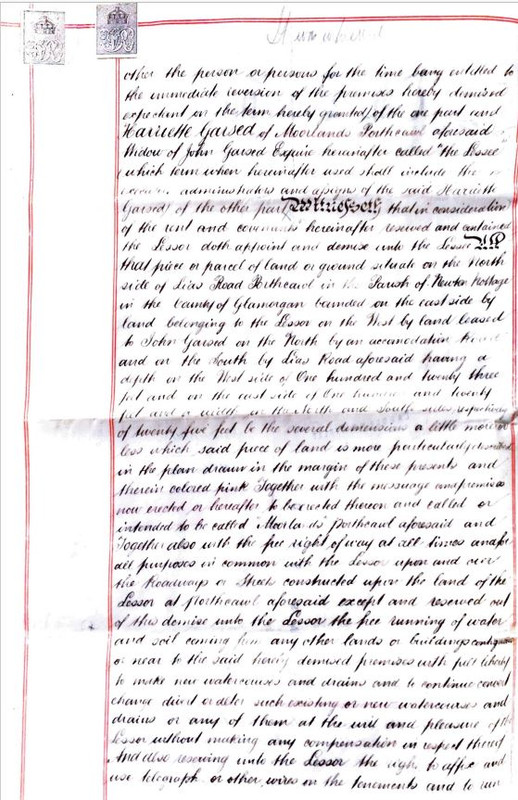 other the person or persons for the time being entitled to
the immediate reversion of the premises hereby demised
expectant on the term hereby granted) of the one part and
Harriette Garsed of Moorlands Porthcawl aforesaid
Widow of John Garsed Esquire hereinafter called "the Lessee"
(which term when hereinafter used shall include the
administrators and assigns of the said Harriette
Garsed) of the other part Witnesseth that in consideration
of the rent and covenants hereinafter reserved and contained
the Lessor doth appoint and demise unto the Lessee All
that piece or parcel of land or ground situate on the North
side of Lias Road Porthcawl in the Parish of Newton Nottage
in the County of Glamorgan bounded on the east side by
land belonging to the Lessor on the West by land leased
to John Garsed on the North by an accomodation Road
and on the South by Lias Road aforesaid having a
depth on the West side of One hundred and twenty three
feet and on the east side of One hundred and twenty
feet and a width on the North and South sides respectively
of twenty five feet be the several dimensions a little more or
less which said piece of land is more particularly
in the plan drawn in the margin of these presents and
therein colored pink Together with the messuage and premises
now erected or hereafter to be erected thereon and called or
intended to be called Moorlands Porthcawl aforesaid and
Together also with the free right of way at all times and for
all purposes in common with the Lessor upon and over
the Roadways or Streets constructed upon the land of the
Lessor at Porthcawl aforesaid except and reserved out
of this demise unto the Lessor the free running of water
and soil coming from any other lands or buildings contiguous
or near to the said hereby demised premises with full liberty
to make new watercourses and drains and to continue convert
change divert or alter such existing or new watercourses and
drains or any of them at the will and pleasure of the
Lessor without making any compensation in respect thereof
And also reserving unto the Lessor the right to affix and
use telegraph or other wires on the tenements and to run